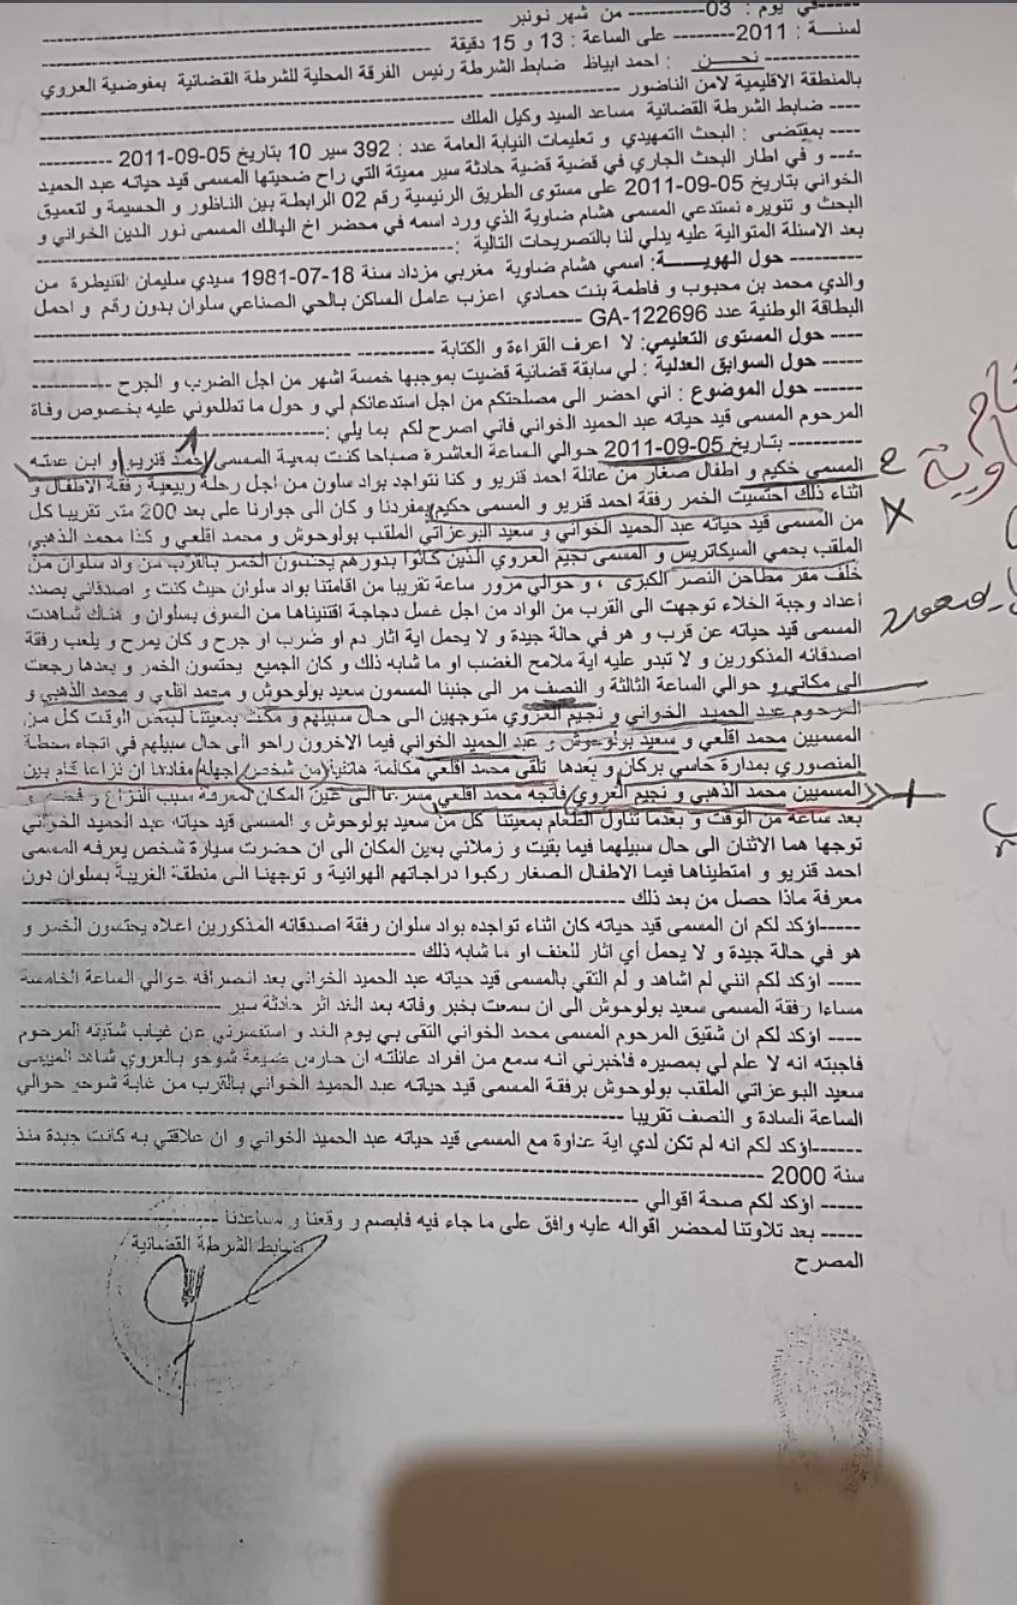 في يوم : 03---------- من شهر نونبر
لسنة : 2011-------- على الساعة : 13 و 15 دقيقة
نحن : احمد ابياظ ضابط الشرطة رئيس الفرقة المحلية للشرطة القضائية بمفوضية العروي
بالمنطقة الاقليمية لامن الناضور
---- ضابط الشرطة القضائية مساعد السيد وكيل الملك
---- بمقتضى : البحث التمهيدي و تعليمات النيابة العامة عدد : 392 سير 10 بتاريخ 05-09-2011
---- و في اطار البحث الجاري في قضية قضية حادثة سير مميتة التي راح ضحيتها المسمى قيد حياته عبد الحميد
الخواني بتاريخ 05-09-2011 على مستوى الطريق الرئيسية رقم 02 الرابطة بين الناظور و الحسيمة و لتعميق
البحث و تنويره نستدعي المسمى هشام ضاوية الذي ورد اسمه في محضر اخ الهالك المسمى نور الدين الخواني و
بعد الاسئلة المتوالية عليه يدلي لنا بالتصريحات التالية :
--------- حول الهوية: اسمي هشام ضاوية مغربي مزداد سنة 18-07-1981 سيدي سليمان القنيطرة من
والدي محمد بن محبوب و فاطمة بنت حمادي اعزب عامل الساكن بالحي الصناعي سلوان بدون رقم و احمل
البطاقة الوطنية عدد GA-122696
---- حول المستوى التعليمي: لا اعرف القراءة و الكتابة
----- حول السوابق العدلية : لي سابقة قضائية قضيت بموجبها خمسة اشهر من اجل الضرب و الجرح
------ حول الموضوع : اني احضر الى مصلحتكم من اجل استدعائكم لي و حول ما تطلعوني عليه بخصوص وفاة
المرحوم المسمى قيد حياته عبد الحميد الخواني فاني اصرح لكم بما يلي :
--------- بتاريخ 05-09-2011 حوالي الساعة العاشرة صباحا كنت بمعية المسمى احمد قنريو و ابن عمته
المسمى حكيم و اطفال صغار من عائلة احمد قنريو و كنا نتواجد بواد سلون من اجل رحلة ربيعية رفقة الاطفال و
اثناء ذلك احتسيت الخمر رفقة احمد قنريو و المسمى حكيم بمفردنا و كان الى جوارنا على بعد 200 متر تقريبا كل
من المسمى قيد حياته عبد الحميد الخواني و سعيد البوعزاتي الملقب بولوحوش و محمد اقلعي و كذا محمد الذهبي
الملقب بحمي السيكاتريس و المسمى نجيم العروي الذين كانوا بدورهم يحتسون الخمر بالقرب من واد سلوان من
خلف مقر مطاحن النصر الكبرى ، و حوالي مرور ساعة تقريبا من اقامتنا بواد سلوان حيث كنت و اصدقائي بصدد
اعداد وجبة الخلاء توجهت الى القرب من الواد من اجل غسل دجاجة اقتنيناها من السوق بسلوان و هناك شاهدت
المسمى قيد حياته عن قرب و هو في حالة جيدة و لا يحمل اية اثار دم او ضرب او جرح و كان يمرح و يلعب رفقة
اصدقائه المذكورين و لا تبدو عليه اية ملامح الغضب او ما شابه ذلك و كان الجميع يحتسون الخمر و بعدها رجعت
الى مكاني و حوالي الساعة الثالثة و النصف مر الى جنبنا المسمون سعيد بولوحوش و محمد اقلعي و محمد الذهبي و
المرحوم عبد الحميد الخواني و نجيم العروي متوجهين الى حال سبيلهم و مكث بمعيتنا لبعض الوقت كل من
المسميين محمد اقلعي و سعيد بولوحوش و عبد الحميد الخواني فيما الاخرون راحو الى حال سبيلهم في اتجاه محطة
المنصوري بمدارة حاسي بركان و بعدها تلقى محمد اقلعي مكالمة هاتفية (من شخص اجهله) مفادها ان نزاعا قام بين
المسميين محمد الذهبي و نجيم العروي فاتجه محمد اقلعي مسرعا الى عين المكان لمعرفة سبب النزاع و فضه و
بعد ساعة من الوقت و بعدما تناول الطعام بمعيتنا كل من سعيد بولوحوش و المسمى قيد حياته عبد الحميد الخواني
توجها هما الاثنان الى حال سبيلهما فيما بقيت و زملائي بعين المكان الى ان حضرت سيارة شخص يعرفه المسمى
احمد قنريو و امتطيناها فيما الاطفال الصغار ركبوا دراجاتهم الهوائية و توجهنا الى منطقة الغريبة بسلوان دون
معرفة ماذا حصل من بعد ذلك
-----اؤكد لكم ان المسمى قيد حياته كان اثناء تواجده بواد سلوان رفقة اصدقائه المذكورين اعلاه يحتسون الخمر و
هو في حالة جيدة و لا يحمل أي اثار للعنف او ما شابه ذلك
---- اؤكد لكم انني لم اشاهد و لم التقي بالمسمى قيد حياته عبد الحميد الخواني بعد انصرافه حوالي الساعة الخامسة
مساءا رفقة المسمى سعيد بولوحوش الى ان سمعت بخبر وفاته بعد الغد اثر حادثة سير
---- اؤكد لكم ان شقيق المرحوم المسمى محمد الخواني التقى بي يوم الغد و استفسرني عن غياب شقيقه المرحوم
فاجبته انه لا علم لي بمصيره فاخبرني انه سمع من افراد عائلته ان حارس ضيعة شوحو بالعروي شاهد المسمى
سعيد البوعزاتي الملقب بولوحوش برفقة المسمى قيد حياته عبد الحميد الخواني بالقرب من غابة شوحو حوالي
الساعة السادة و النصف تقريبا
------اؤكد لكم انه لم تكن لدي اية عداوة مع المسمى قيد حياته عبد الحميد الخواني و ان علاقتي به كانت جيدة منذ
سنة 2000
----- اؤكد لكم صحة اقوالي
----- بعد تلاوتنا لمحضر اقواله عليه وافق على ما جاء فيه فابصم و وقعنا و مساعدنا
ضابط الشرطة القضائية
المصرح